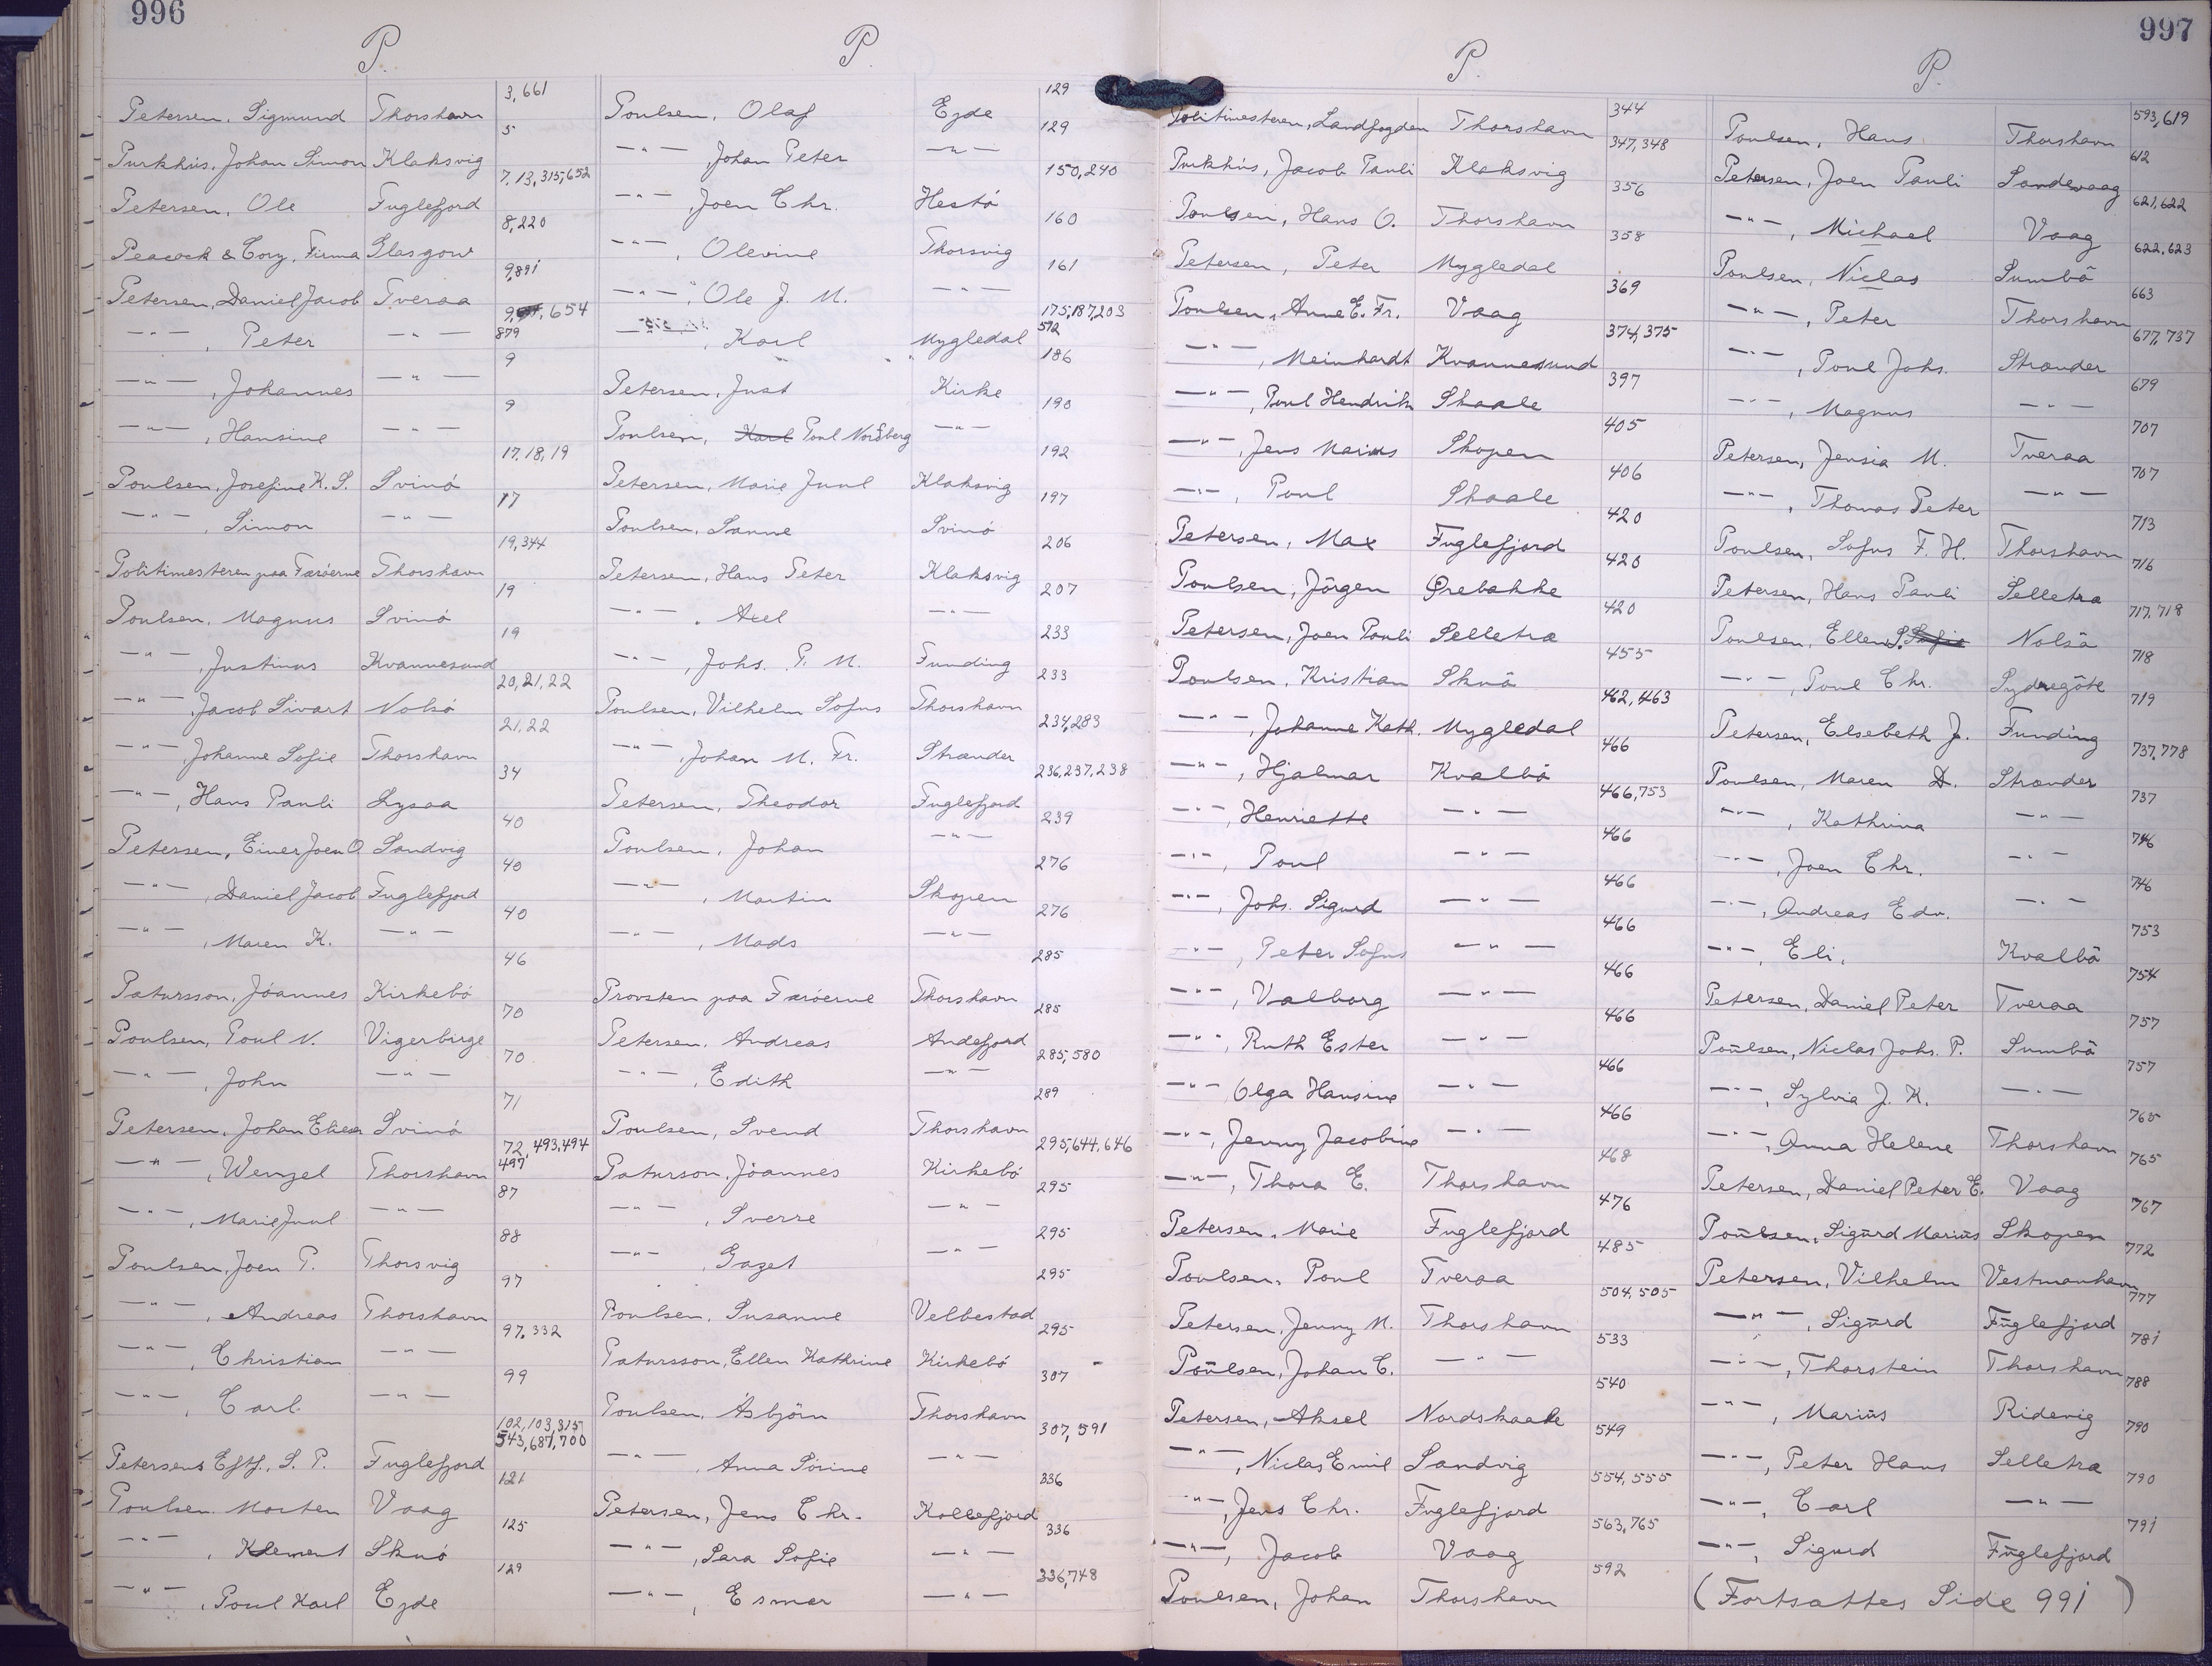 996
P.
Petersen, Sigmund Thorshavn 3, 661
Purkhús, Johan Simon Klaksvig 5
Petersen, Ole Fuglefjord 7, 13, 315, 652
Peacock & Cory, Firma Glasgow 8, 220
Petersen, Daniel Jacob Tveraa 9, 891
—"—, Peter —"— 9, 654 879
—"—, Johannes —"— 9
—"—, Hansine —"— 9
Poulsen, Josefine K. S. Svinó 17, 18, 19
—"—, Simon —"— 17
Politimesteren paa Færóerne Thorshavn 19, 344
Poulsen, Magnus Svinó 19
—"—, Justinus Kvannesund 19
—"—, Jacob Sivart Nolsó 20, 21, 22
—"—, Johanne Sofie Thorshavn 21, 22
—"—, Hans Pauli Lysaa 34
Petersen, Einer Joen O Sandvig 40
—"—, Daniel Jacob Fuglefjord 40
—"—, Maren K. —"— 40
Patursson, Jóannes Kirkebó 46
Poulsen, Poul N. Vigerbirge 70
—"—, John —"— 70
Petersen, Johan Elieser Svinó 71
—"—, Wenzel Thorshavn 72, 493, 494 497
—"—, Marie Juul —"— 87
Poulsen, Joen P. Thorsvig 88
—"—, Andreas Thorshavn 97
—"—, Christian —"— 97, 332
—"—, Carl —"— 99
Petersens Eftf., S. P. Fuglefjord 102, 103, 315 543, 687, 700
Poulsen, Morten Vaag 121
—"—, Klement Skuó 125
—"—, Poul Karl Ejde 129
P.
Poulsen, Olaf Ejde 129
—"—, Johan Peter —"— 129
—"—, Joen Chr. Hestó 150, 240
—"—, Olevine Thorsvig 160
—"—, Ole J. M. —"— 161
—"—, Karl Mygledal 175, 187, 203 572
Petersen, Just Kirke 186
Poulsen, Karl Poul Nordberg —"— 190
Petersen, Marie Juul Klaksvig 192
Poulsen, Sanne Svinó 197
Petersen, Hans Peter Klaksvig 206
—"—, Axel —"— 207
—"—, Johs. P. M. Funding 233
Poulsen, Vilhelm Sofus Thorshavn 233
—"—, Johan M. Fr. Strænder 234, 283
Petersen, Theodor Fuglefjord 236, 237, 238
Poulsen, Johan —"— 239
—"—, Martin Skopen 276
—"—, Mads —"— 276
Provsten paa Færóerne Thorshavn 285
Petersen, Andreas Andefjord 285
—"—, Edith —"— 285, 580
Poulsen, Svend Thorshavn 289
Paturson, Jóannes Kirkebó 295, 644, 646
—"—, Sverre —"— 295
—"—, Gazet —"— 295
Poulsen, Susanne Velbestad 295
Patursson, Ellen Kathrine Kirkebó 295
Poulsen, Ásbjörn Thorshavn 307
—"—, Anna Sórine —"— 307, 591
Petersen, Jens Chr. Kollefjord 336
—"—, Sara Sofie —"— 336
—"—, Esmer —"— 336, 748
997
P.
Politimesteren, Landfogden Thorshavn 344
Purkhús, Jacob Pauli Klaksvig 347, 348
Poulsen, Hans O. Thorshavn 356
Petersen, Peter Mygledal 358
Poulsen, Anne E. Fr. Vaag 369
—"—, Meinhardt Kvannesund 374, 375
—"—, Poul Hendrik Skaale 397
—"—, Jens Marius Skopen 405
—"—, Poul Skaale 406
Petersen, Max Fuglefjord 420
Poulsen, Jörgen Ørebakke 420
Petersen, Joen Pauli Selletræ 420
Poulsen, Kristian Skuö 455
—"—, Johanne Kath. Mygledal 462, 463
—"—, Hjalmar Kvalbö 466
—"—, Henriette —"— 466, 753
—"—, Poul —"— 466
—"—, Johs. Sigurd —"— 466
—"—, Peter Sofus —"— 466
—"—, Valborg —"— 466
—"—, Ruth Ester —"— 466
—"— Olga Hansine —"— 466
—"—, Jenny Jacobine —"— 466
—"—, Thora E. Thorshavn 468
Petersen, Marie Fuglefjord 476
Poulsen, Poul Tveraa 485
Petersen, Jenny M. Thorshavn 504, 505
Poūlsen, Johan C. —"— 533
Petersen, Aksel Nordskaale 540
—"—, Niclas Emil Sandvig 549
—"—, Jens Chr. Fuglefjord 554, 555
—"—, Jacob Vaag 563, 765
Poulsen, Johan Thorshavn 592
P.
Poulsen, Hans Thorshavn 593, 619
Petersen, Joen Pauli Sandevaag 612
—"—, Michael Vaag 621, 622
Poulsen, Niclas Sumbö 622, 623
—"—, Peter Thorshavn 663
—"—, Poul Johs. Strænder 677, 737
—"—, Magnus —"— 679
Petersen, Jensia M. Tveraa 707
—"—, Thomas Peter —"— 707
Poulsen, Sofus F. H. Thorshavn 713
Petersen, Hans Pauli Selletræ 716
Poulsen, Ellen S. Sofie Nolsö 717, 718
—"—, Poul Chr. Sydregöte 718
Petersen, Elsebeth J. Funding 719
Poulsen, Maren D. Strænder 737, 778
—"—, Kathrina —"— 737
—"—, Joen Chr. —"— 746
—"—, Andreas Edv. —"— 746
—"—, Eli, Kvalbö 753
Petersen, Daniel Peter Tveraa 754
Poūlsen, Niclas Johs. P. Sumbö 757
—"—, Sylvia J. K. —"— 757
—"—, Anna Helene Thorshavn 765
Petersen, Daniel Peter E. Vaag 765
Poūlsen, Sigūrd Mariūs Skopen 767
Petersen, Vilhelm Vestmanhavn 772
—"—, Sigūrd Fūglefjord 777
—"—, Thorstein Thorshavn 781
—"—, Mariūs Ridevig 788
—"—, Peter Hans Selletræ 790
—"—, Carl —"— 790
—"—, Sigurd Fūglefjord 791
(Fortsattes Side 991)